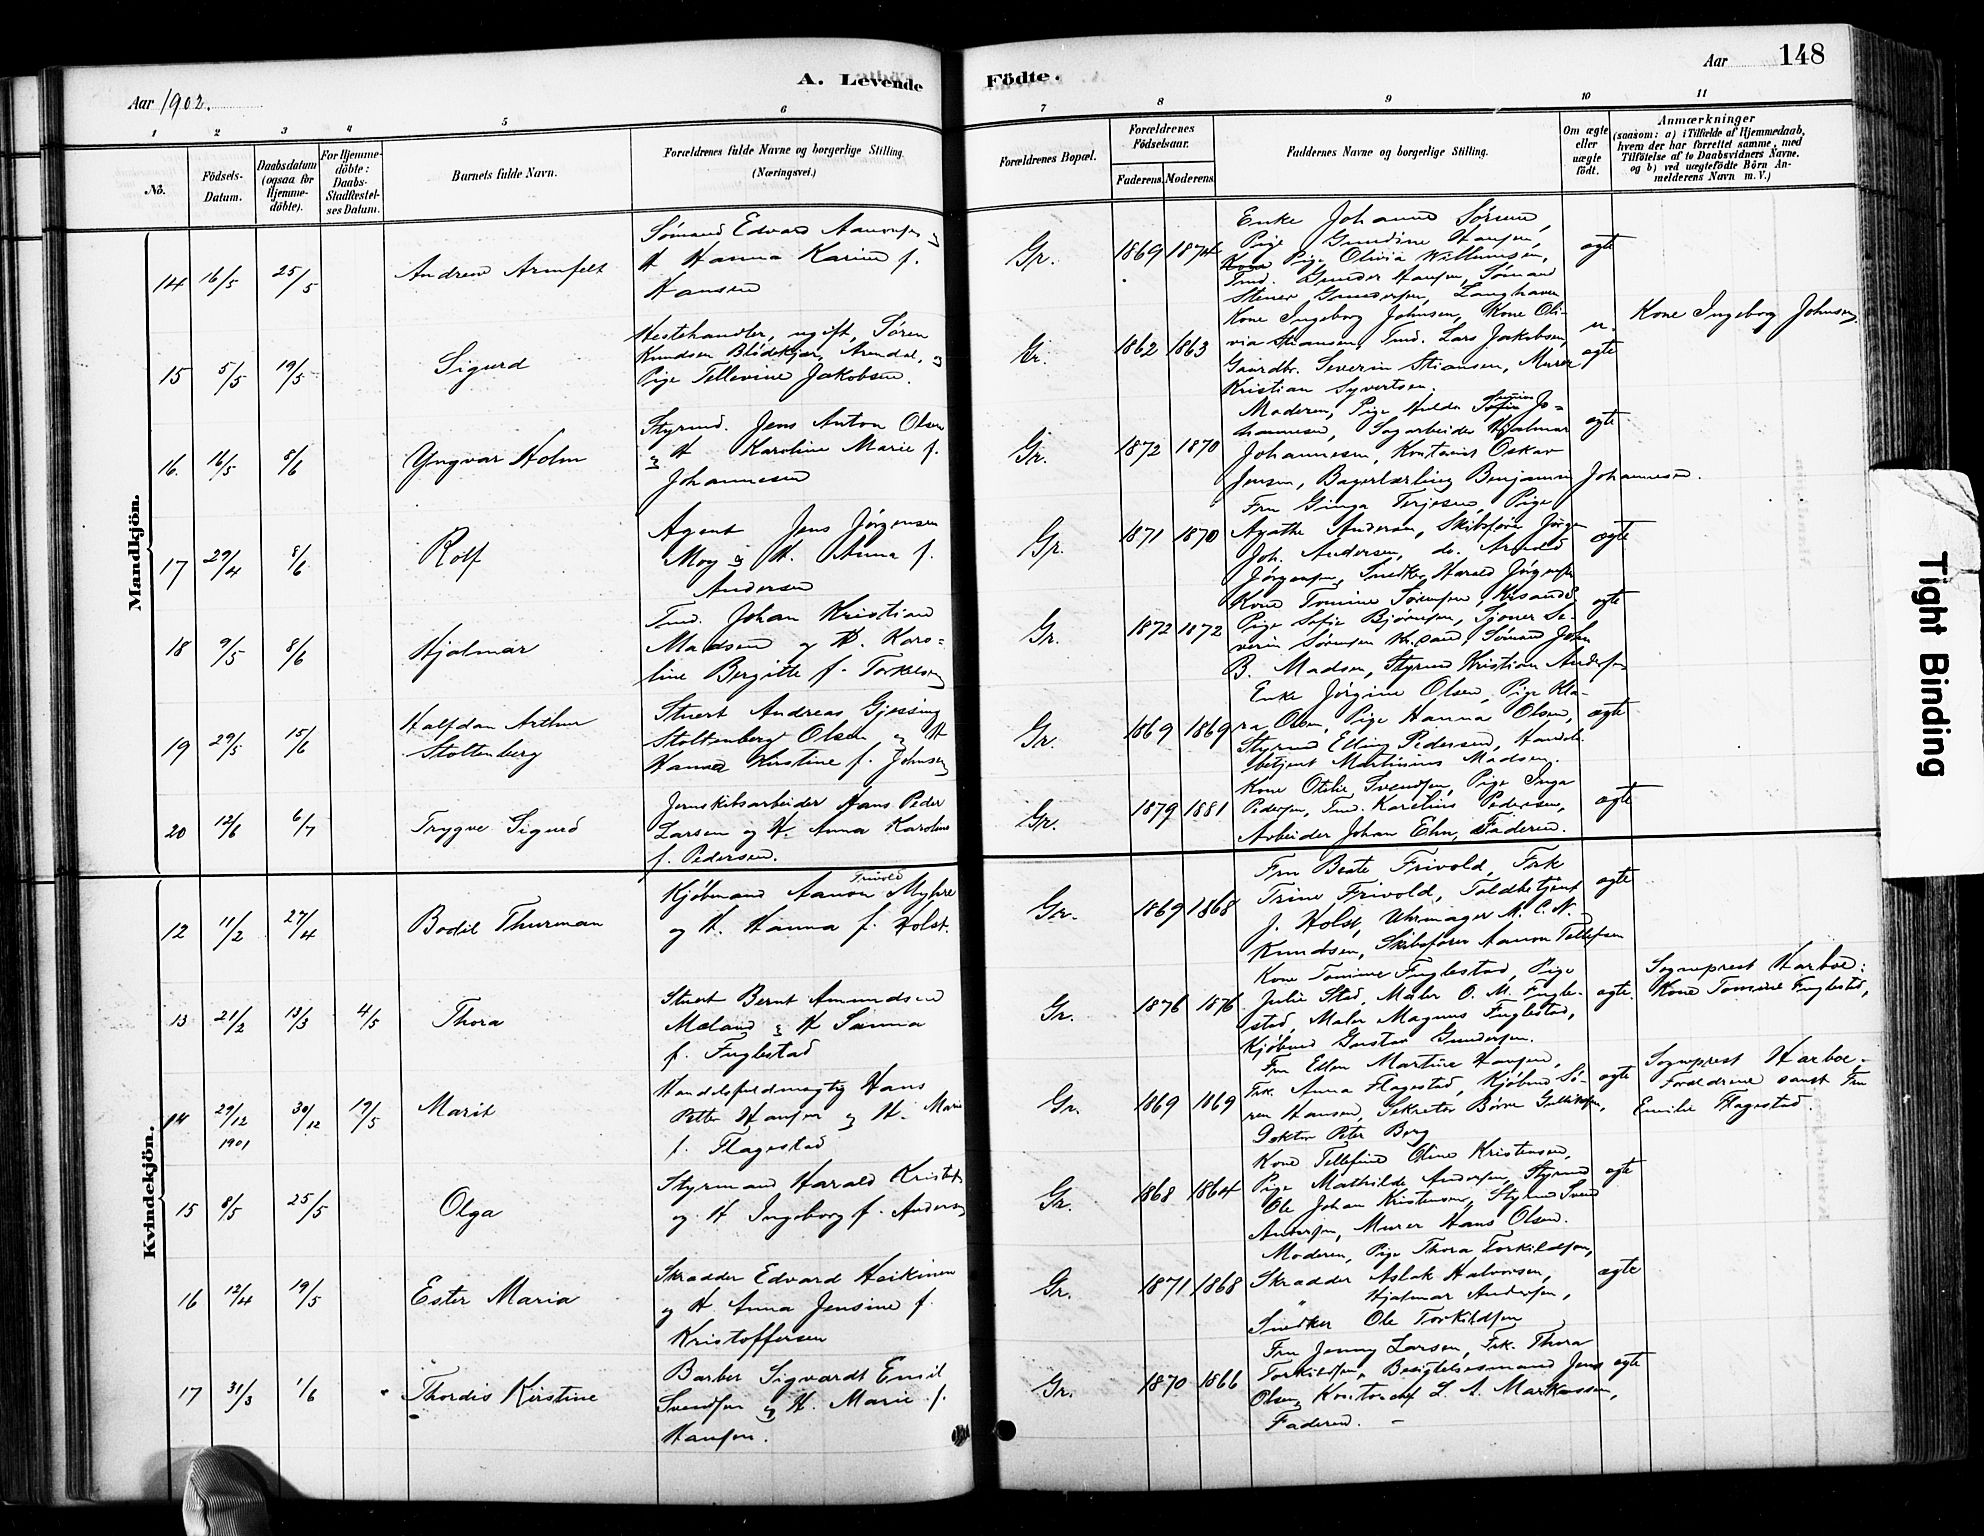 A. Levende
Aar 1902.
1
2
3
4
5
6
No.
Födsels-
Datum.
Daabsdatum
(ogsaa for
Hjemme-
döbte).
For Hjemme-
döbte:
Daabs-
Stadfæstel-
ses Datum.
Barnets fulde Navn.
Forældrenes fulde Navne og borgerlige Stilling.
(Næringsvei.)
Mandkjön.
14 16/5 25/5 Andreas Armfelt
Sømand Edvard Aanonsen og
H Hanna Karine f.
Hansen
15 5/5 19/5 Sigurd
Hestehandler, ugift, Søren
Knudsen Blødekjær, Arendal, og
Pige Tellevine Jakobsen.
16. 16/5 8/6 Yngvar Holm
Styrmd. Jens Anton Olsen
og H Karoline Marie f.
Johannesen
17 29/4 8/6 Rolf
Agent Jens Jörgensen
Moy og H. Anna f.
Andersen
18 9/5 8/6 Hjalmar
Tmd. Johan Kristian
Madsen og H. Karo-
line Bergitte f. Torkelsen
19 29/5 15/6 Halfdan Arthur
Stoltenberg
Stuert Andreas Gjessing
Stoltenberg Olsen og H
Hanna Kirstine f. Johnsen
20 12/6 6/7 Trygve Sigurd
Jernskibsarbeider Hans Peder
Larsen og H. Anna Karoline
f. Pedersen.
Kvindekjön.
12 11/2 27/4 Bodil Thurman
Kjøbmand Aanon Frivold Myhre
og H. Hanna f. Holst.
13 21/2 13/3 4/5 Thora
Stuert Bernt Amundsen
Mæland og H Sanna
f. Fuglestad
14 29/12 1901 30/12 19/5 Marit
Handelsfuldmægtig Hans
Petter Hansen og H. Marie
f. Flagestad
15 8/5 25/5 Olga
Styrmand Harald Kristens
og H Ingeborg f. Anders
16 12/4 19/5 Ester Maria
Skrædder Edvard Heikinen
og H. Anna Jensine f.
Kristoffersen
17 31/3 1/6 Thordis Kirstine
Barber Sigvardt Emil
Svendsen og H. Marie f.
Hansen.
Födte.
Aar 148
7
8
9
10
11
Forældrenes Bopæl.
Forældrenes
Födselsaar.
Faderens.
Moderens.
Faddernes Navne og borgerlige Stilling.
Om ægte
eller
uægte
födt.
Anmærkninger
(saasom: a) i Tilfælde af Hjemmedaab,
hvem der har forrettet samme, med
Tilföielse af to Daabsvidners Navne.
og b) ved uægtefödte Börn An-
melderens Navn m. V.)
Gr. 1869 1874
Enke Johanne Sørsen,
Pige Gundine Hansen,
Kone Pige Olivia Willumsen,
Tmd. Gunder Hansen, Sømand
Stener Gundersen, Langhaven
ægte
Gr. 1862 1863
Kone Ingeborg Johnsen, Kone Oli-
via Stiansen, Tmd. Lars Jakobsen,
Gaardbr. Severin Stiansen, Murer
Kristian Syvertsen.
u.
ægte
Kone Ingeborg Johnsen.
Gr. 1872 1870
Moderen, Pige Hulda Sofie Jo-
hannesen, Sagarbeider Hjalmar
Johannesen, Kontorist Oskar
Jensen, Bagerlærling Benjamin Johannesen.
ægte
Gr. 1871 1870
Fru Ginga Terjesen, Pige
Agathe Andersen, Skibsfører Jörgen
Joh. Andersen, do. Arnold
Jörgensen, Snedker Harald Jörgensen
ægte
Gr. 1872 1872
Kone Tomine Sørensen, Krsand S.
Pige Sofie Bjørnsen, Tjener Se-
verin Sørensen Kr.sand, Sømand John
B. Madsen, Styrmd Kristian Andersen
ægte
Gr. 1869 1869
Enke Jörgine Olsen, Pige Kla-
ra Olsen, Pige Hanna Olsen,
Styrmd Elling Pedersen, Handels-
betjent Martinius Madsen.
ægte
Gr. 1879 1881
Kone Otilie Svendsen, Pige Inga
Pedersen, Tmd. Karelius Pedersen,
Arbeider Johan Ehn, Faderen.
ægte
Gr. 1869 1868
Fru Beate Frivold, Frk
Trine Frivold, Toldbetjent
J. Holst, Uhrmager M. C. N.
Knudsen, Skibsfører Aanon Tellefsen
ægte
Gr. 1876 1876
Kone Tomine Fuglestad, Pige
Julie Stad, Maler O. M. Fugle-
stad, Maler Magnus Fuglestad,
Kjøbmd Gustav Gundersen.
ægte.
Sogneprest Harboe:
Kone Tomine Fuglestad,
Gr. 1869 1869
Fru Ellen Martine Hansen,
Frk. Anna Flagestad, Kjøbmd Sø-
ren Hansen, Sekretær Børre Gulliksen,
Doktor Peter Borg
ægte
Sogneprest Harboe.
Forældrene samt Fru
Emilie Flagestad.
Gr. 1868 1864
Kone Tellefine Oline Kristensen,
Pige Mathilde Andersen, Styrmd
Ole Johan Kristensen, Styrmd Svend
Andersen, Murer Hans Olsen.
ægte
Gr. 1871 1868
Moderen, Pige Thora Torkildsen,
Skrædder Aslak Halvorsen,
" Hjalmar Andersen,
Snedker Ole Torkildsen
ægte
Gr. 1870 1866
Fru Jenny Larsen, Frk. Thora
Torkildsen, Besigtelsesmand Jens
Olsen, Kontorchef L. A. Markussen,
Faderen. –
ægte
Tight Binding